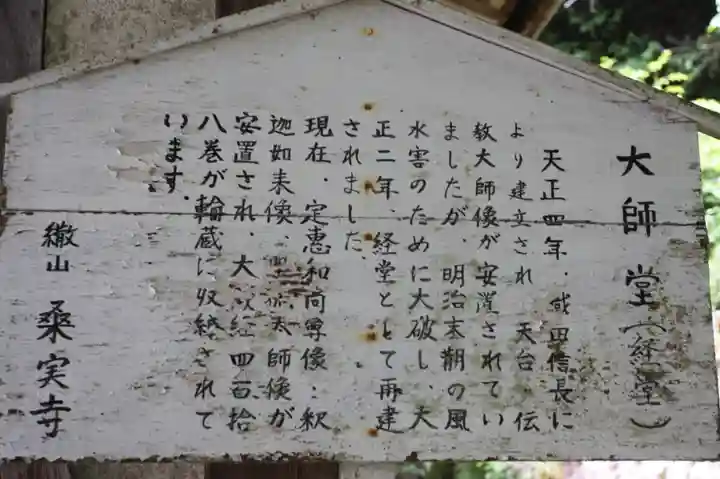 大師堂(経堂)
天正四年、織田信長に
より建立され 天台 伝
教大師像が安置されてい
ましたが、明治末期の風
水害のために大破し、大
正二年、経堂として再建
されました。
現在、定恵和尚尊像:釈
迦如来像、 大師像が
安置され、大 経四百拾
八巻が輪蔵に収納されて
います。
繖山 桑実寺